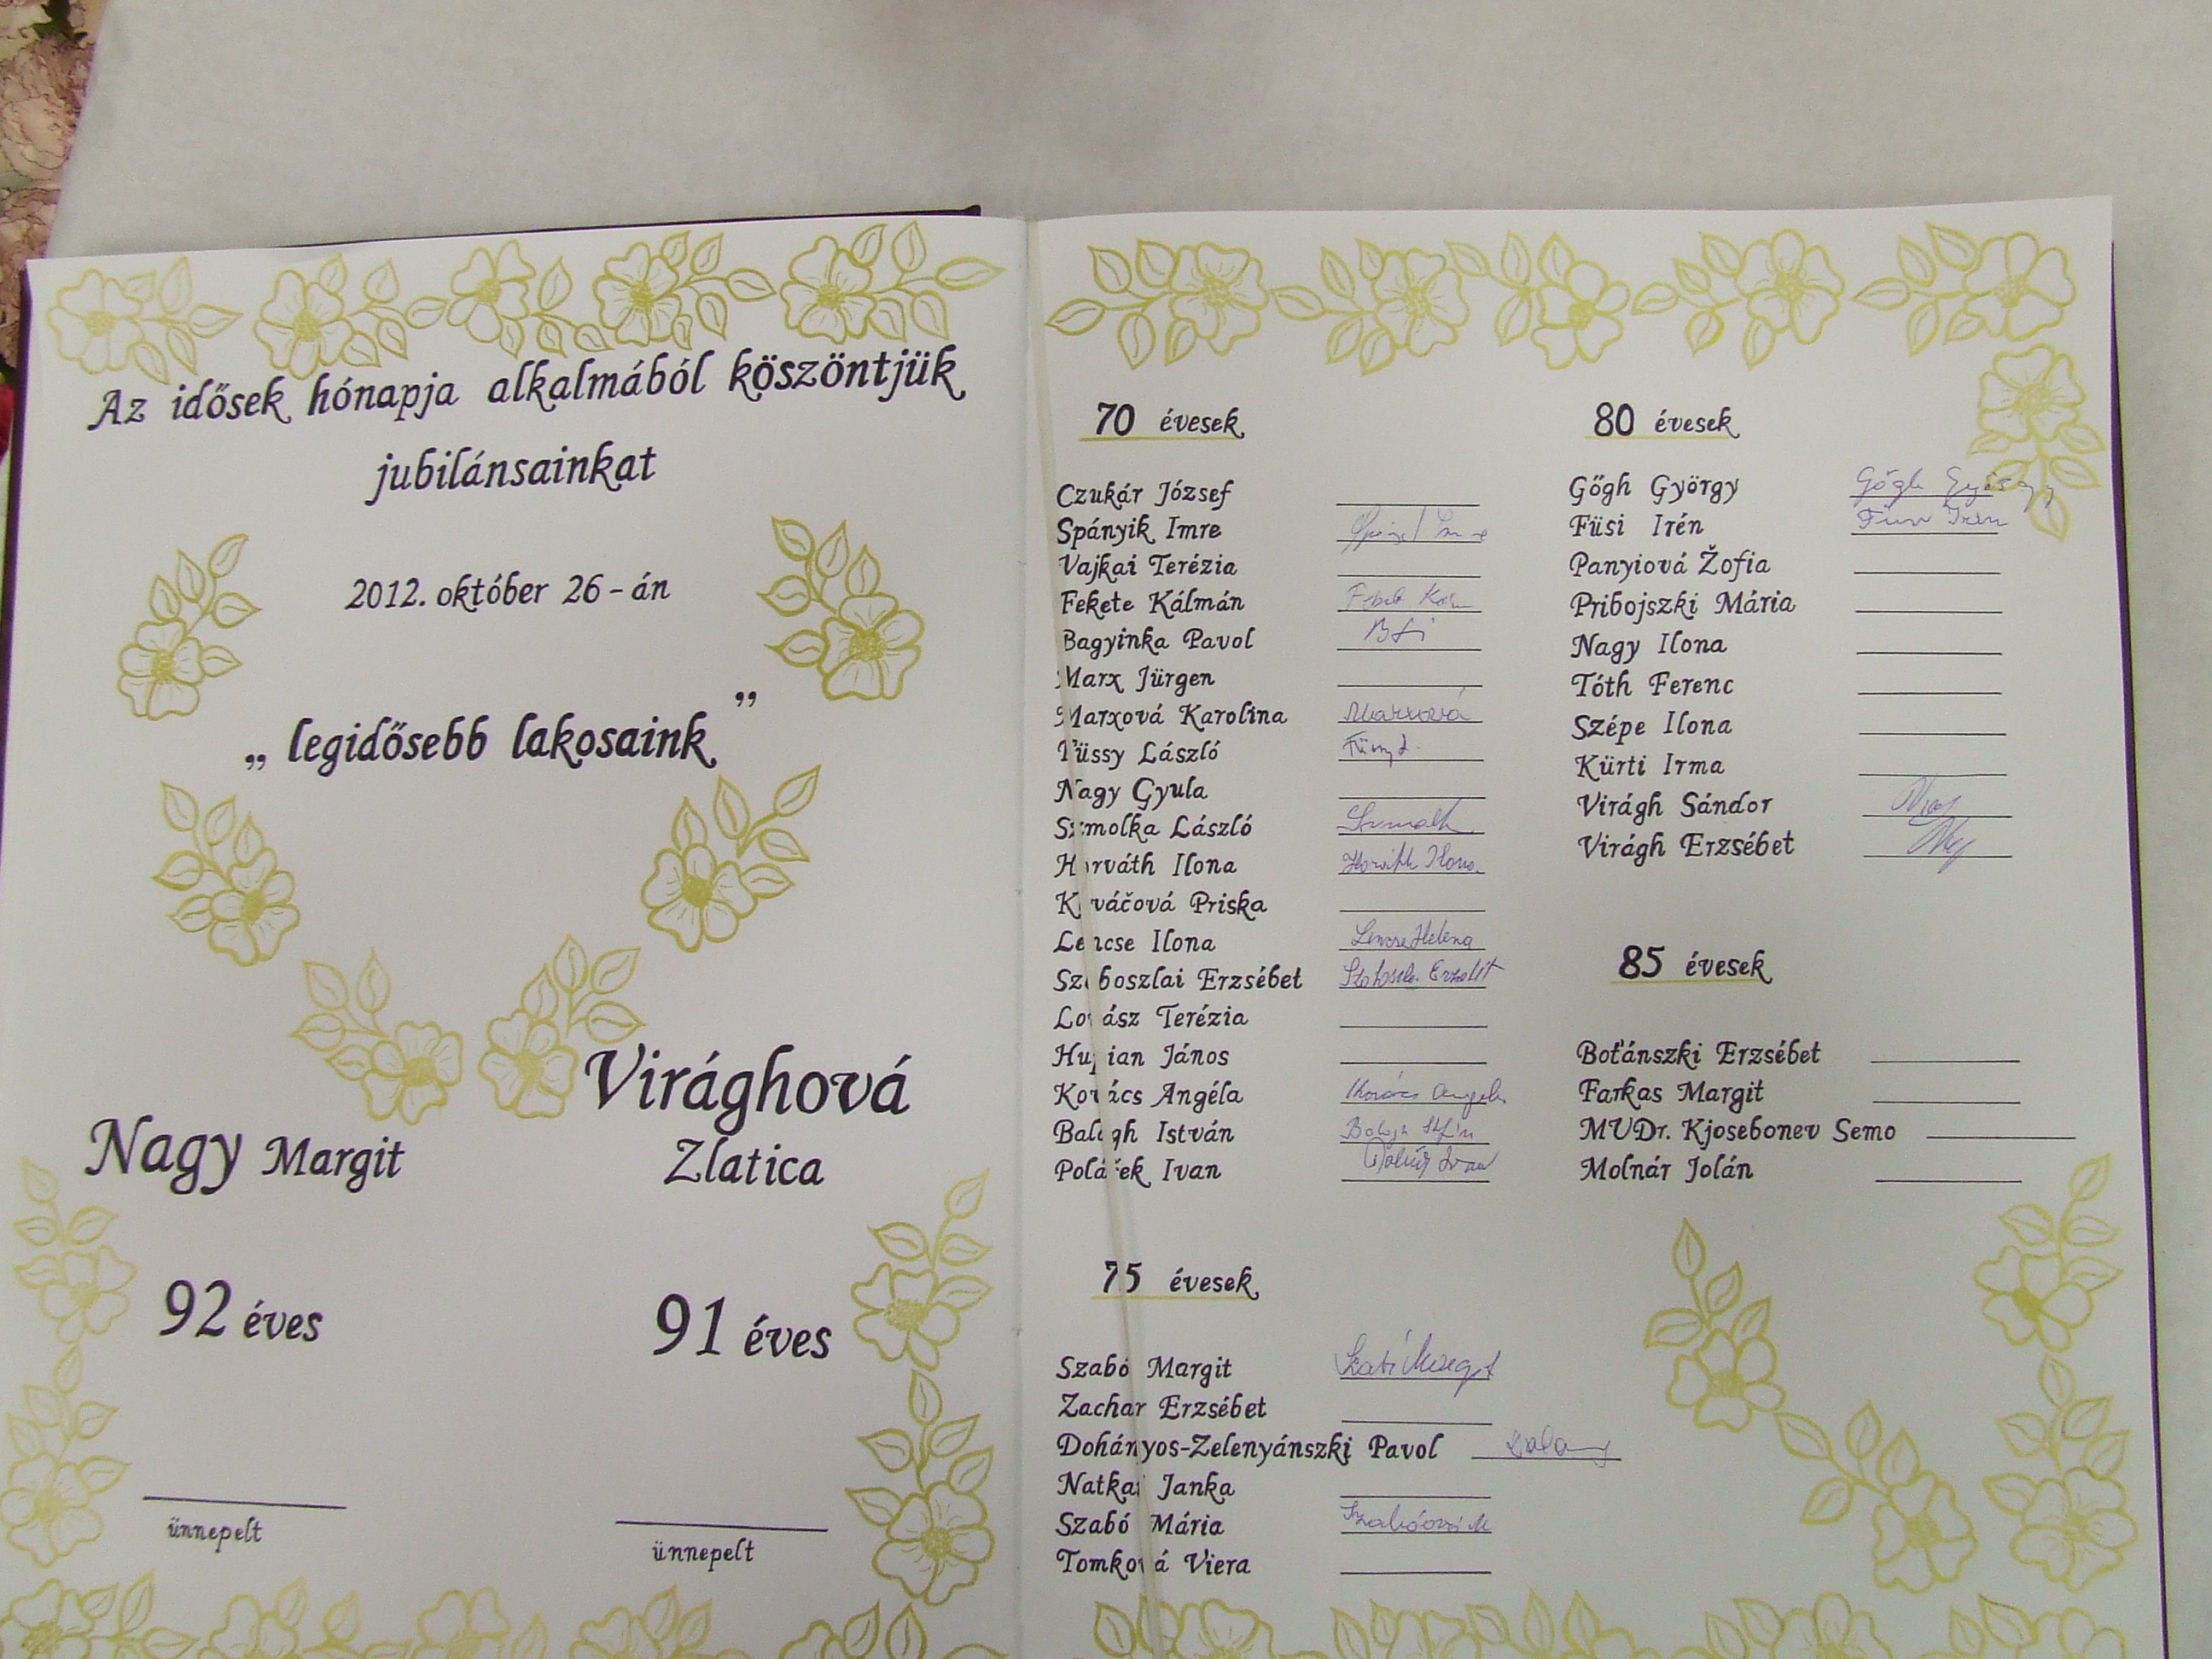 Az idősek hónapja alkalmából köszöntjük
jubilánsainkat
2012. október 26-án
„legidősebb lakosaink”
Nagy Margit
92 éves
ünnepelt
Virághová
Zlatica
91 éves
ünnepelt
70 évesek
Czukár József
Spányik Imre
Vajkai Terézia
Fekete Kálmán
Bagyinka Pavol
Marx Jürgen
Marxová Karolina Marxová
Füssy László
Nagy Gyula
Szmolka László
Horváth Ilona Horváth Ilona
Kováčová Priska
Lencse Ilona Lencse Helena
Szoboszlai Erzsébet
Lovász Terézia
János
Kovács Angéla Kovács Angela
Balogh István
Poláček Ivan
75 évesek
Szabó Margit Szabó Margit
Zachar Erzsébet
Dohányos-Zelenyánszki Pavol
Janka
Szabó Mária Szabóová M
Tomková Viera
80 évesek
Gőgh György Gőgh György
Füsi Irén Füsi Irén
Panyiová Žofia
Pribojszki Mária
Nagy Ilona
Tóth Ferenc
Szépe Ilona
Kürti Irma
Virágh Sándor
Virágh Erzsébet
85 évesek
Boťánszki Erzsébet
Farkas Margit
MUDr. Kjosebonev Semo
Molnár Jolán